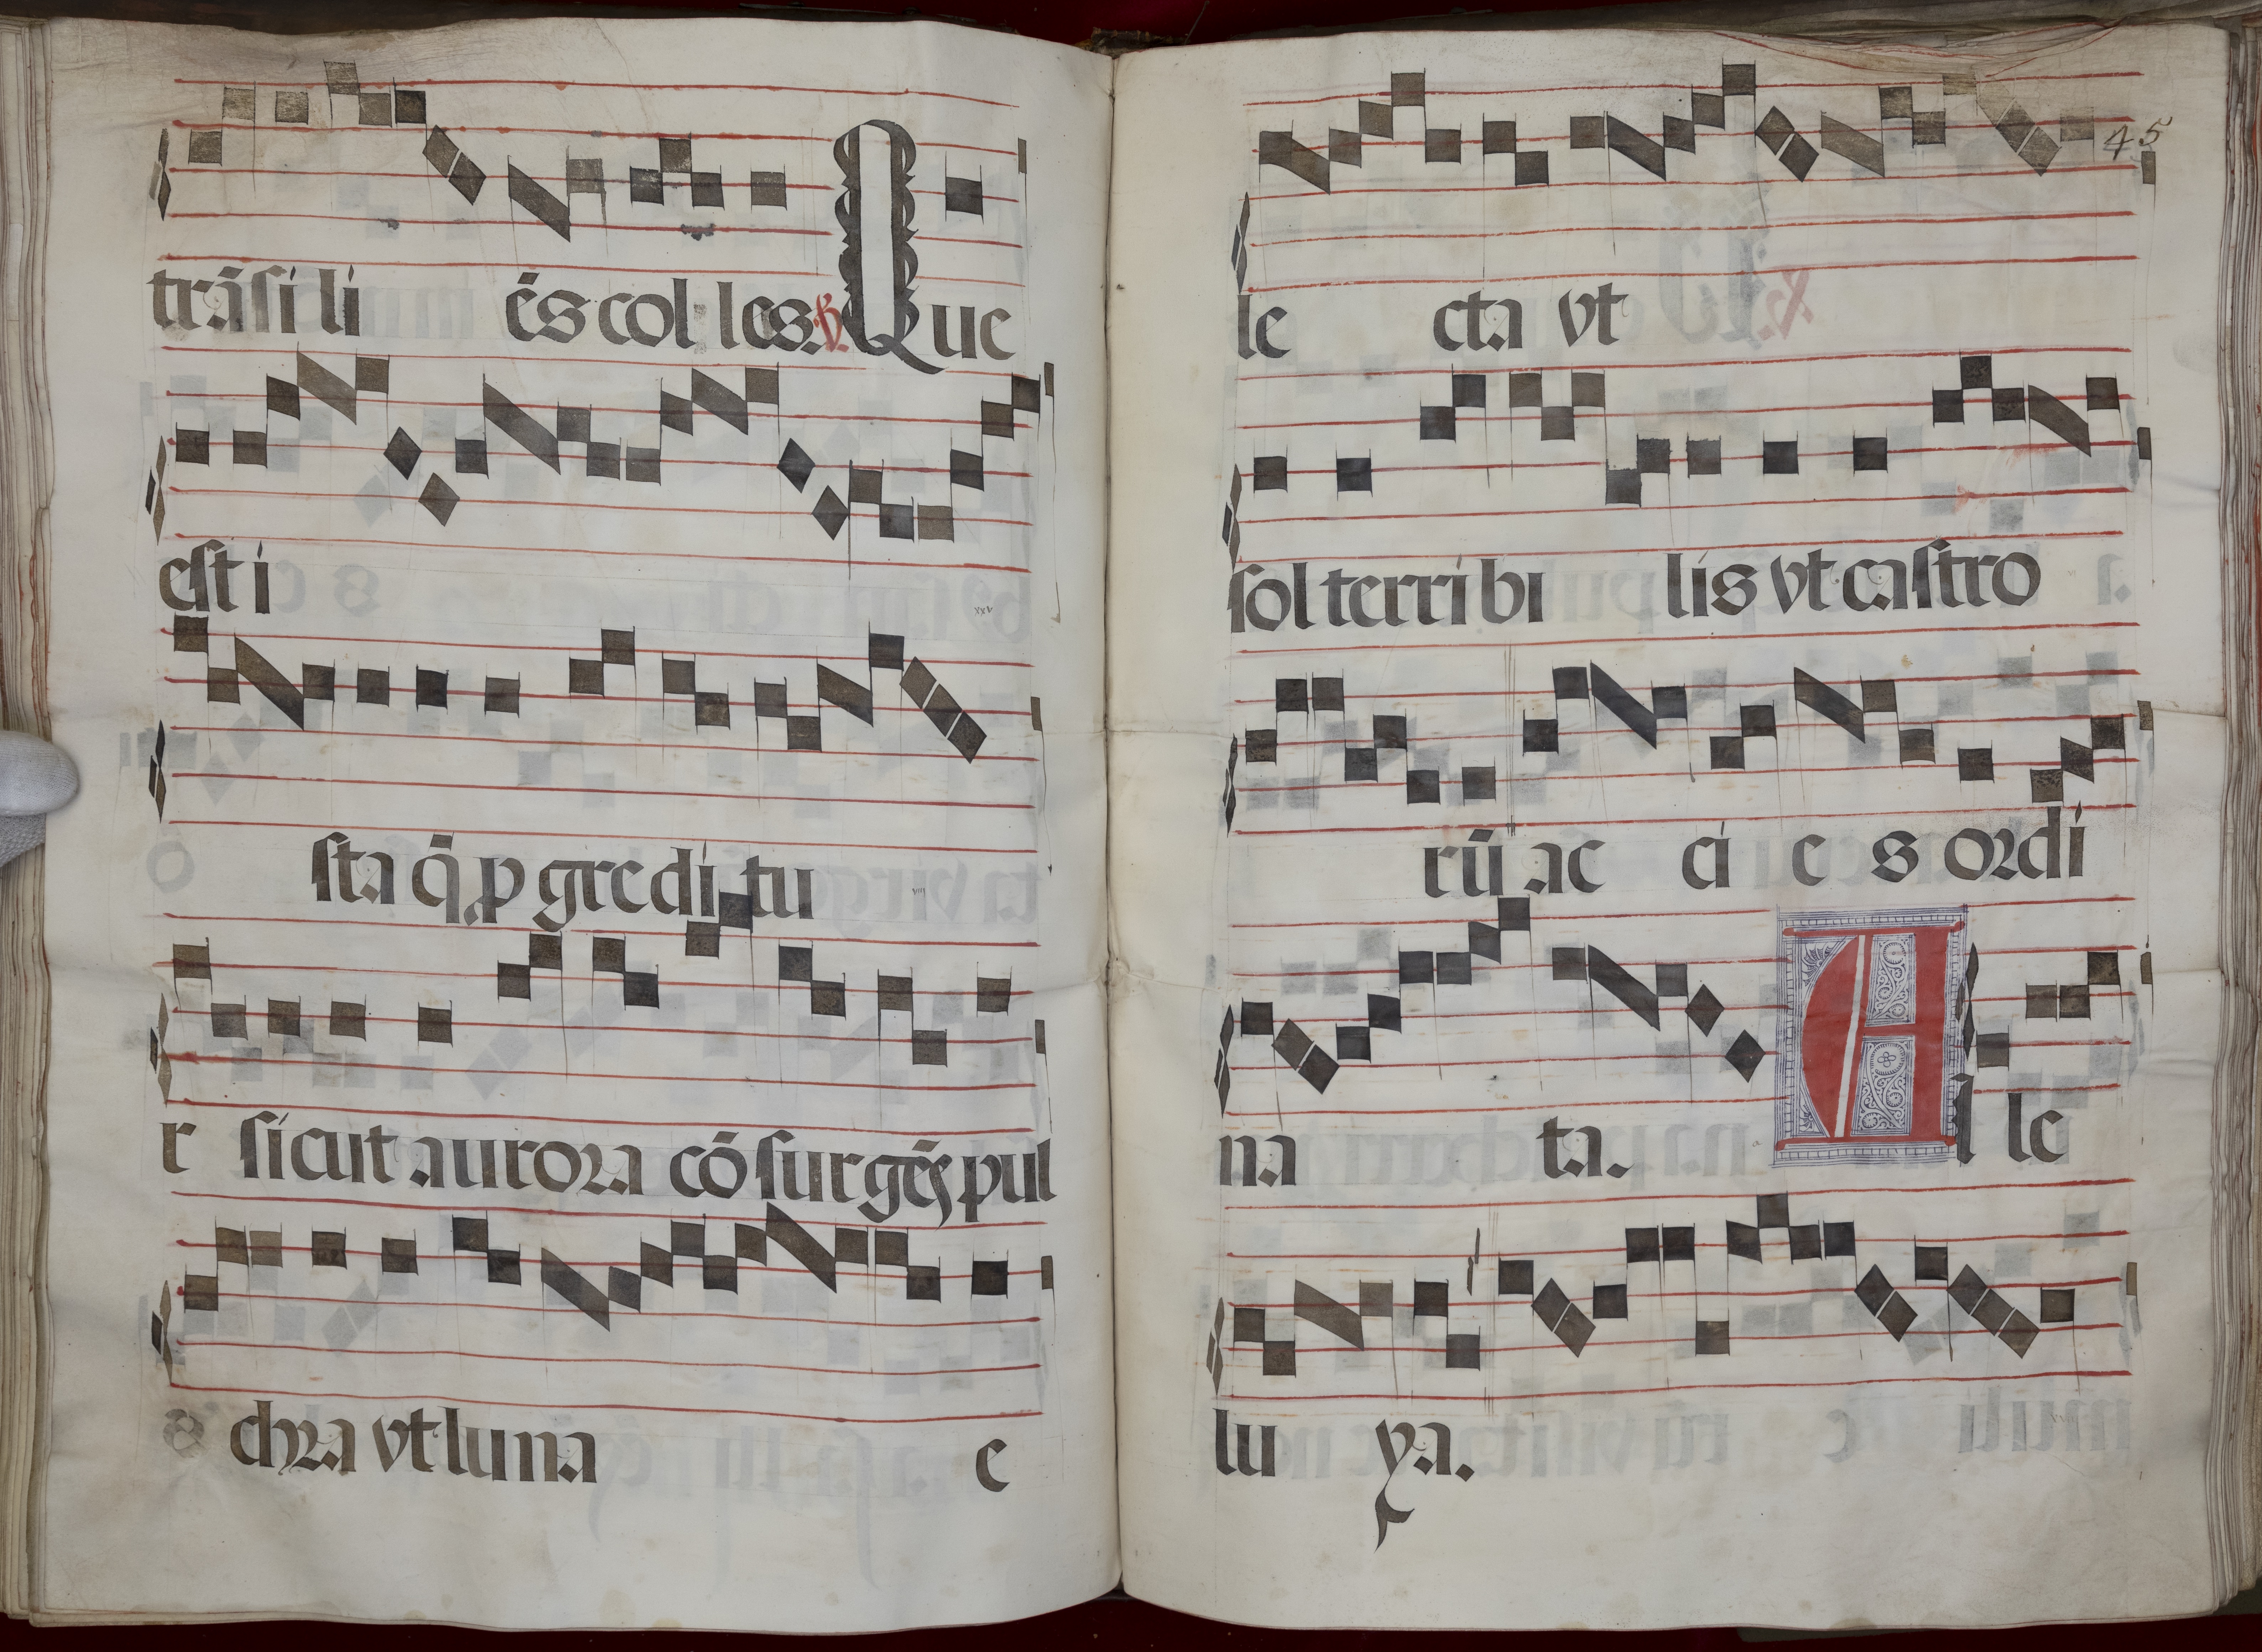 trãsi li ẽs col les. ℟. Que
est i
sta q̃ ꝓ gre di tu
r sicut aurora cõ surgẽs pul
chra vt luna e
45
le cta vt
sol terri bi lis vt castro
rũ ac ci e s ordi
na ta. Al le
lu ya.